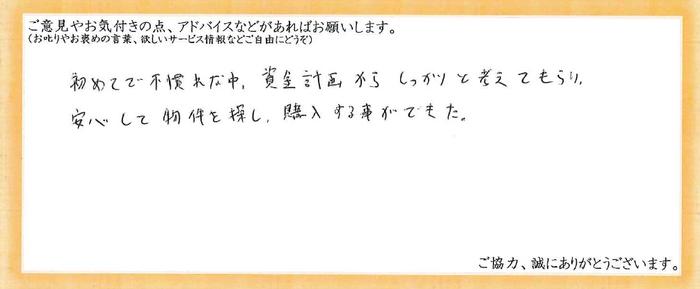 ご意見やお気付きの点、アドバイスなどがあればお願いします。
(お叱りやお褒めの言葉、欲しいサービス情報などご自由にどうぞ)
初めてで不慣れな中、資金計画からしっかりと考えてもらい、
安心して物件を探し、購入する事ができた。
ご協力、誠にありがとうございます。